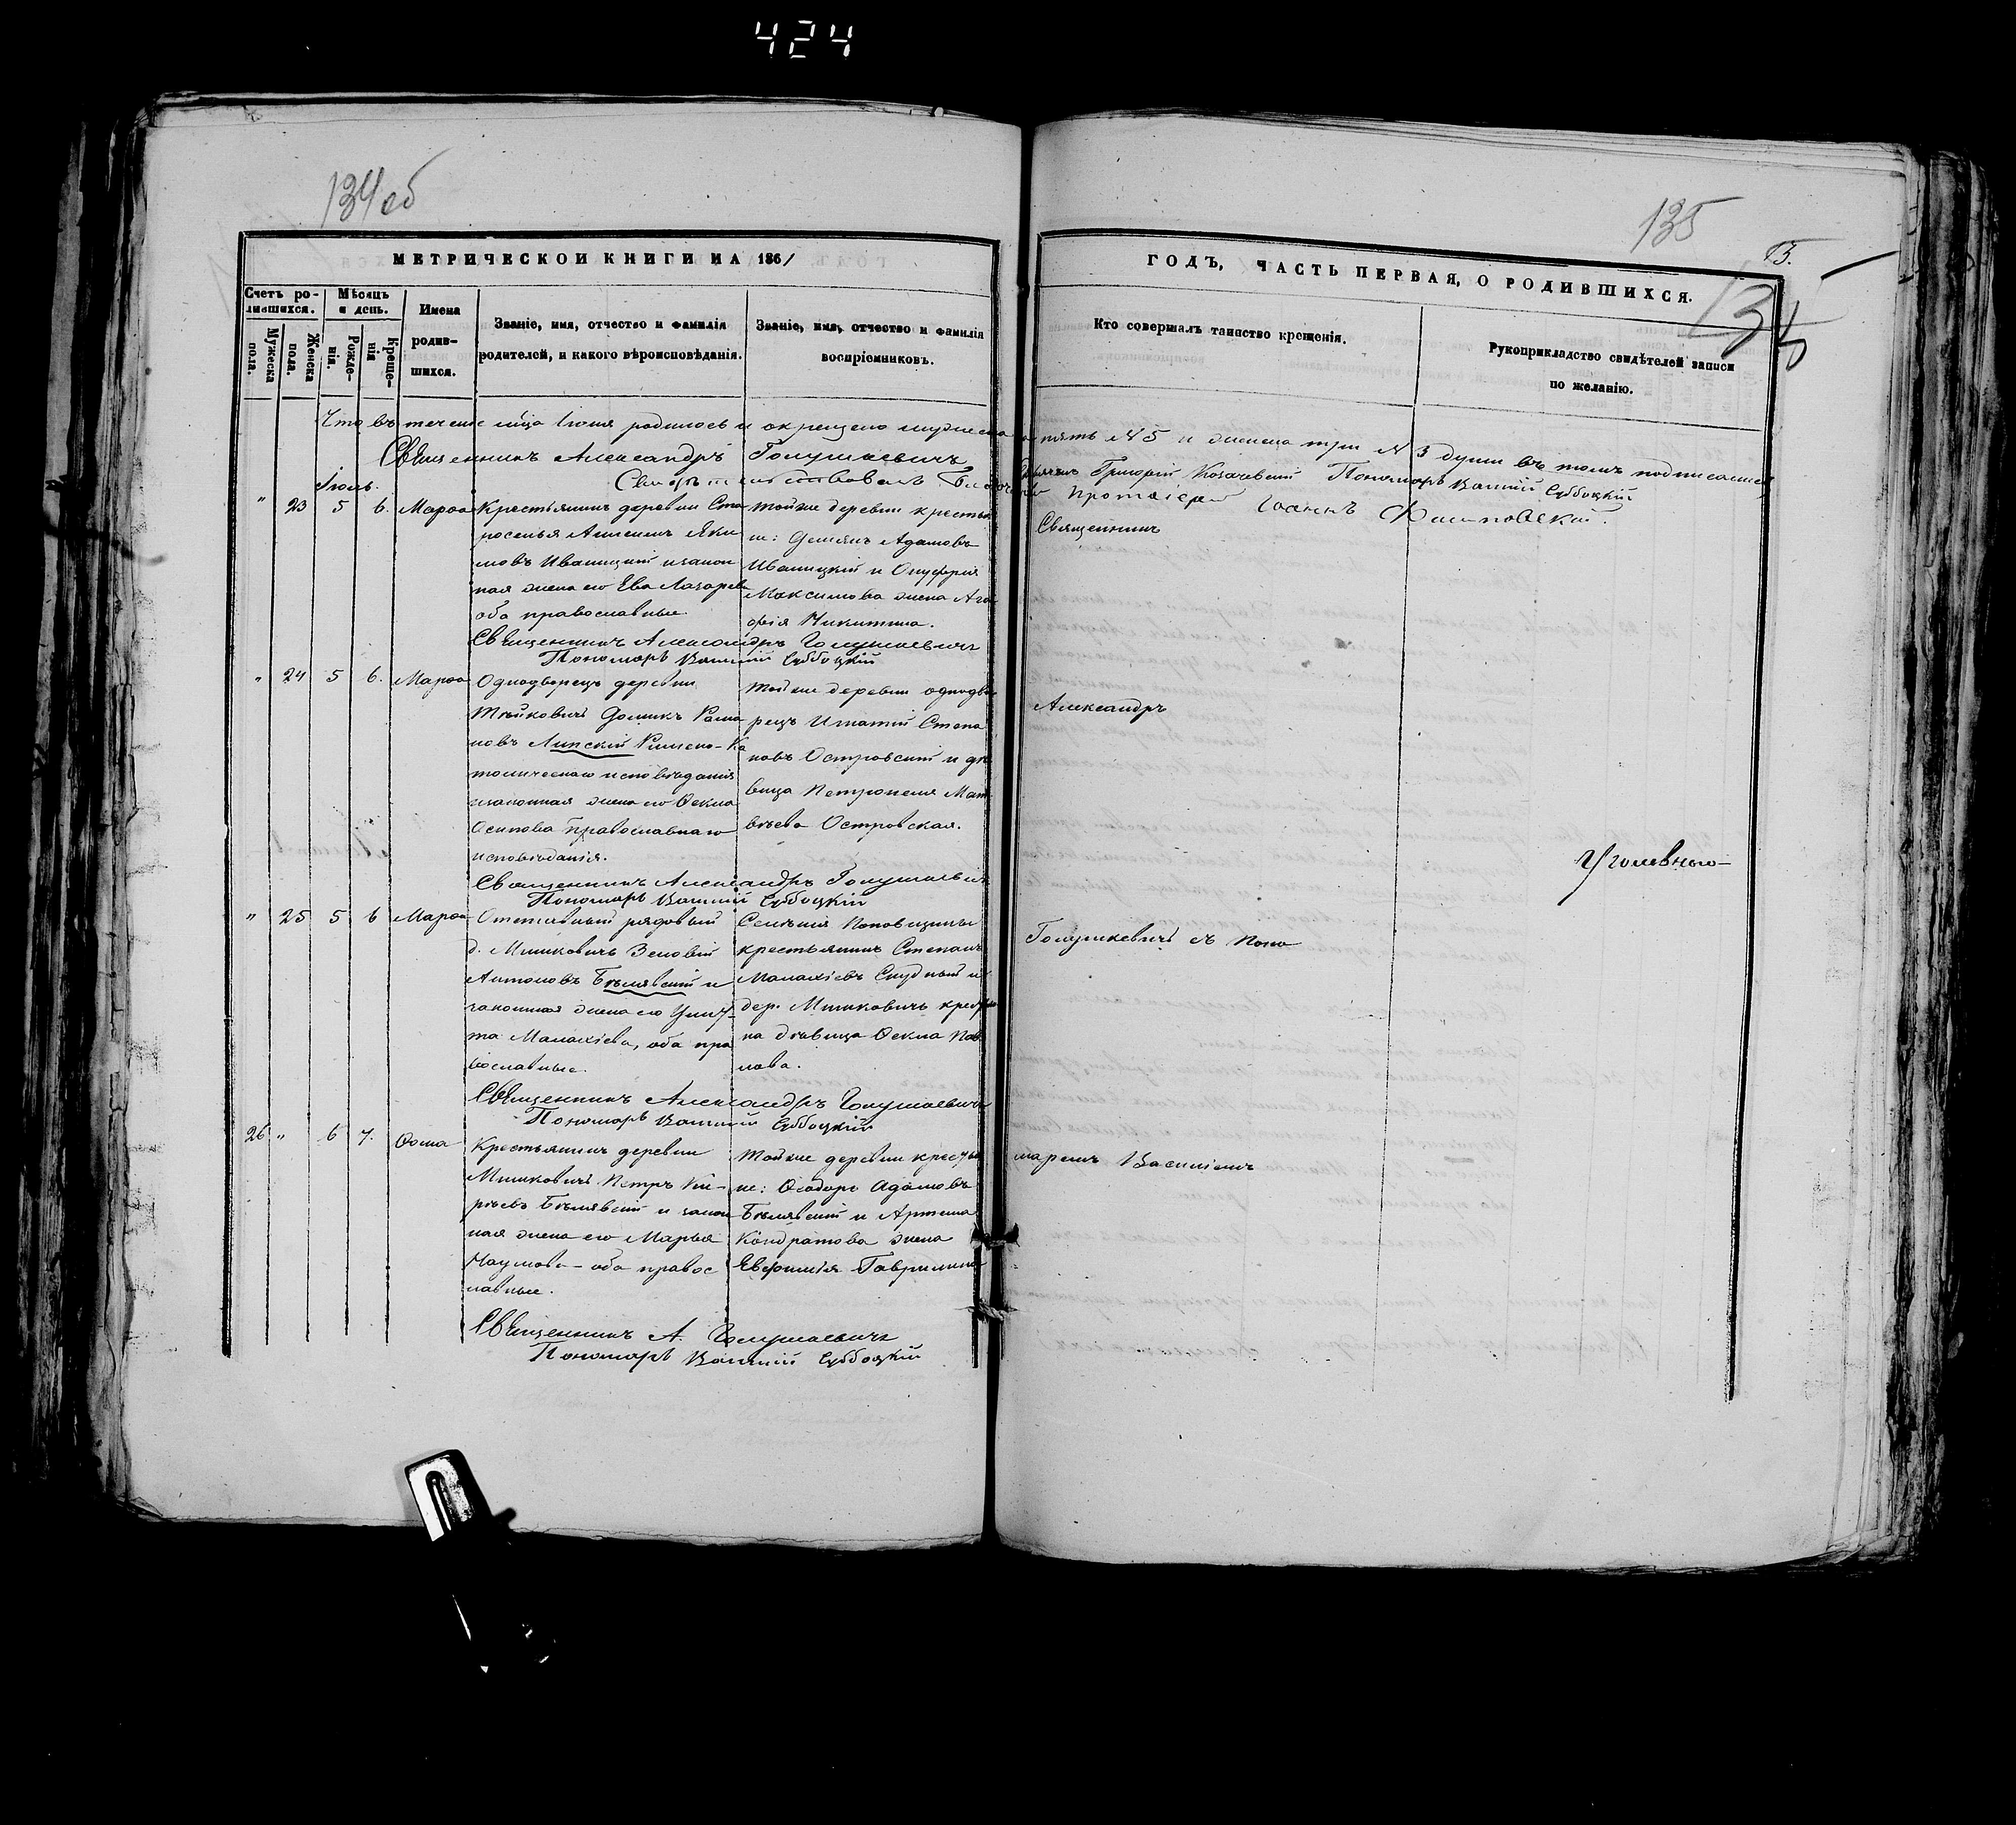 424
134 об
135
МЕТРИЧЕСКОЙ КНИГИ НА 1861
ГОДЪ, ЧАСТЬ ПЕРВАЯ, О РОДИВШИХСЯ.
Счетъ родившихся.
Мужеска пола.
Женска пола.
Мѣсяцъ и день.
Рожденія.
Крещенія
Имена родившихся.
Званіе, имя, отчество и фамилія
родителей, и какого вѣроисповѣданія.
Званіе, имя, отчество и фамилія
воспріемниковъ.
Кто совершалъ таинство крещенія.
Рукоприкладство свидѣтелей записи
по желанію.
Что въ теченіе мѣца Іюня родилось и окрещено мужеска пять № 5 и женска три № 3 души въ томъ подписались
Священникъ Александръ Голушкевичъ
Григорій Козачевскій Пономарь Василій Субботскій
Свидѣтельствовалъ Протоіерей Іоаннъ
Іюль.
" 23 5 6. Марѳа
Крестьянинъ деревни Ста
роселья Алексѣй Яки
мовъ Иваницкій и закон
ная жена его Ева Лазарева
оба православные.
Тойже деревни крестья
не: Демьянъ Адамовъ
Иваницкій и Онуфрія
Максимова жена Ага
фія Никитина.
Священникъ
Священникъ Александръ Голушкевичъ
Пономарь Василій Субботскій
" 24 5 6. Марѳа
Однодворецъ деревни
Доминъ Рома
новъ Липскій Римско-Ка
толическаго исповѣданія
и законная жена его Ѳекла
Осипова православнаго
исповѣданія.
Тойже деревни однодво
рецъ Игнатій Степа
новъ Островскій и дѣ
вица Петронеля Мат
вѣева Островская.
Александръ
Священникъ Александръ Голушкевичъ
Пономарь Василій Субботскій
" 25 5 6 Марѳа
Отставный рядовый
д. Мишковичъ Зеновій
Антоновъ Бѣлявскій и
законная жена его Ули
та Малахіева, оба пра
вославные.
Селенія Поповщины
крестьянинъ Степанъ
Малахіевъ Скудный и
дер. Мишковичъ крестьян
ка дѣвица Ѳекла Пав
лова.
Голушкевичъ съ Поно
Священникъ Александръ Голушкевичъ
Пономарь Василій Субботскій
26 " 6 7. Ѳома
Крестьянинъ деревни
Мишковичъ Петръ
Бѣлявскій и закон
ная жена его Марья
Наумова – оба правос
лавные.
Тойже деревни крестья
не: Ѳеодоръ Адамовъ
Бѣлявскій и Артема
Кондратова жена
Евфимія Гаврилина
маремъ Василіемъ
Священникъ А. Голушкевичъ
Пономарь Василій Субботскій